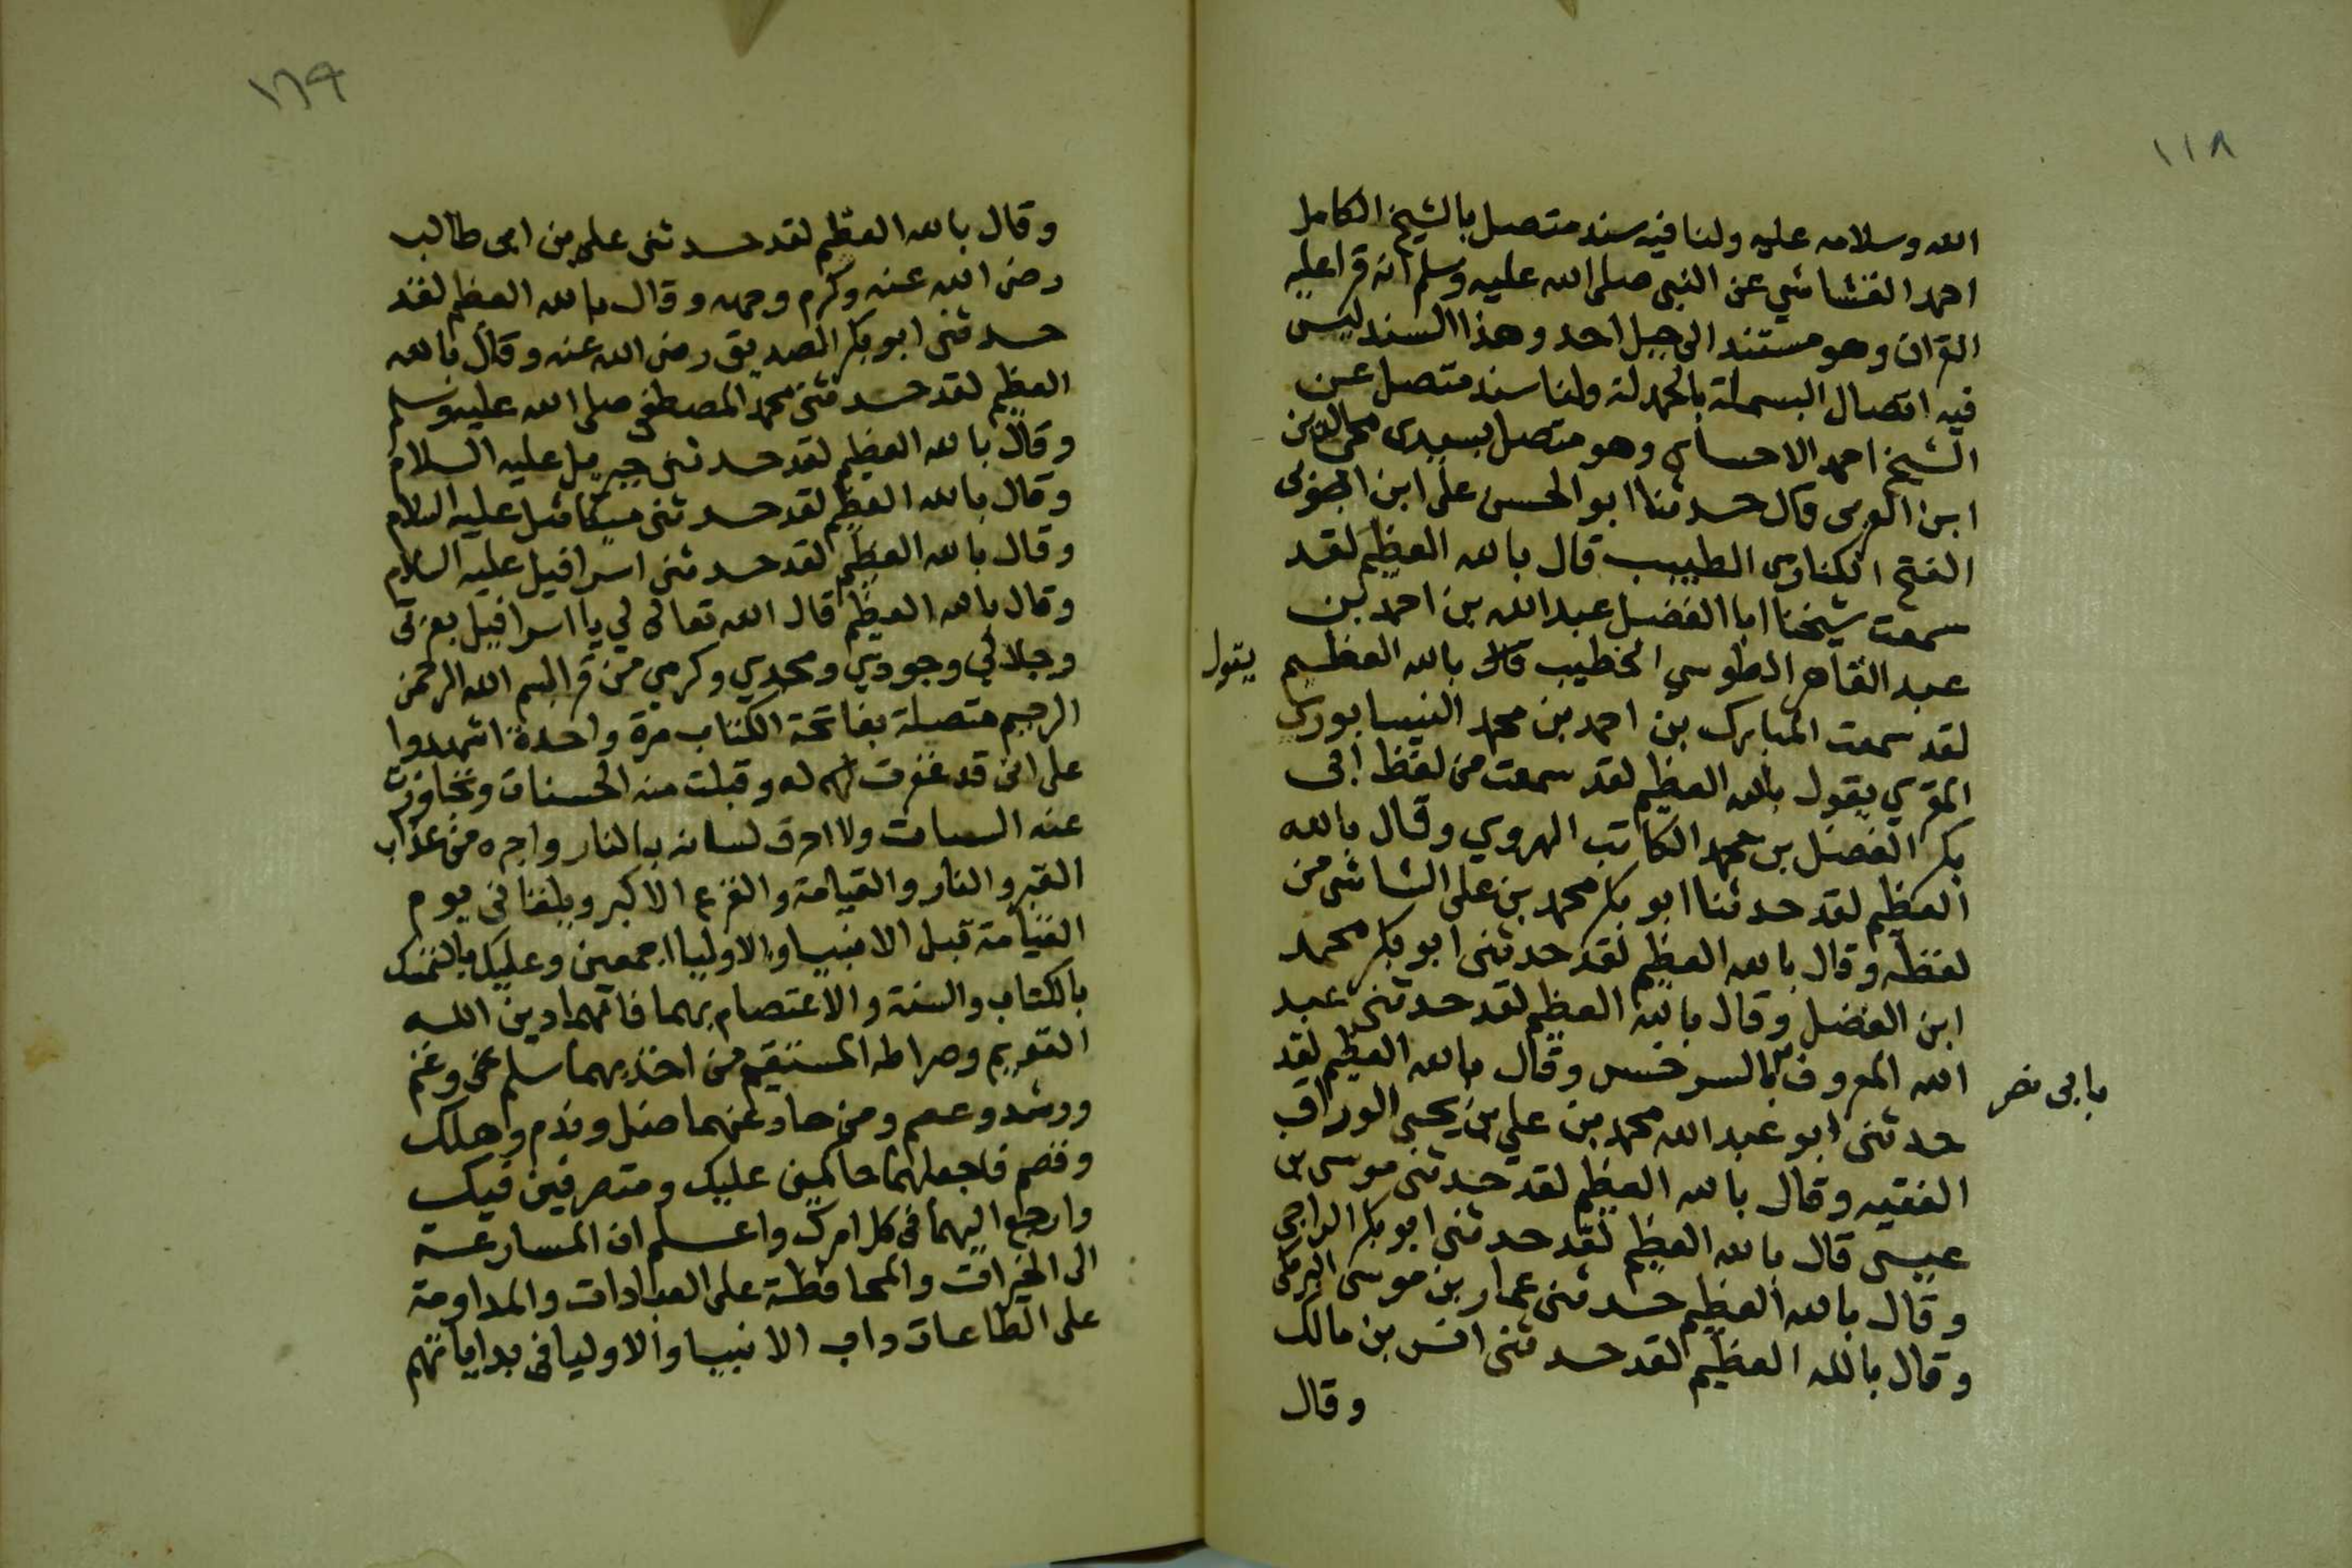 ١١٨
الله وسلامه عليه ولنا فيه سند متصل بالشيخ الكامل
احمد القشاشي عن النبي صلى الله عليه وسلم انه قرا عليه
القران وهو مستند الى جبل احد وهذا السند ليس
فيه اتصال البسملة بالحمدلة ولنا سند متصل عن
الشيخ احمد الاحساى وهو متصل بسيدى محي الدين
ابن العربى قال حدثنا ابو الحسن على ابن
الفتح الكنارى الطبيب قال بالله العظيم لقد
سمعت شيخنا ابا الفضل عبد الله بن احمد بن
عبد القاهر الطوسي الخطيب قال بالله العظيم
يقول
لقد سمعت المبارك بن احمد بن محمد النيسابورى
المقري يقول بالله العظيم لقد سمعت من لفظ ابى
بكر الفضل بن محمد الكاتب الهروي وقال بالله
العظيم لقد حدثنا ابو بكر محمد بن على الشاشى من
لفظه وقال بالله العظيم لقد حدثنى ابو بكر محمد
ابن الفضل وقال بالله العظيم لقد حدثنى عبد
الله المعروف بالسرخسى وقال بالله العظيم لقد
بابى نصر
حدثنى ابو عبد الله محمد بن علي بن يحيى الوراق
الفقيه وقال بالله العظيم لقد حدثنى موسى بن
عيسى قال بالله العظيم لقد حدثنى ابو بكر الراجى
وقال بالله العظيم حدثنى عمار بن موسى البرمكى
وقال بالله العظيم لقد حدثنى انس بن مالك
وقال
١٦٩
وقال بالله العظيم لقد حدثنى على بن ابى طالب
رضى الله عنه وكرم وجهه وقال بالله العظيم لقد
حدثنى ابو بكر الصديق رضى الله عنه وقال بالله
العظيم لقد حدثنى محمد المصطفى صلى الله عليه وسلم
وقال بالله العظيم لقد حدثنى جبريل عليه السلام
وقال بالله العظيم لقد حدثنى ميكائيل عليه السلام
وقال بالله العظيم لقد حدثنى اسرافيل عليه السلام
وقال بالله العظيم قال الله تعالى لي يا اسرافيل بعزتى
وجلالي وجودي ومجدي وكرمي من قرا بسم الله الرحمن
الرحيم متصلة بفاتحة الكتاب مرة واحدة اشهدوا
على انى قد غفرت له وقبلت منه الحسنات وتجاوزت
عنه السيات ولا احرق لسانه بالنار واجره من عذاب
القبر والنار والقيامة والفزع الاكبر ويلقنا فى يوم
القيامة قبل الانبيا والاوليا اجمعين وعليك بالتمسك
بالكتاب والسنة والاعتصام بهما فانهما دين الله
القويم وصراطه المستقيم من اخذ بهما سلم وغنم
ورشد وعصم ومن حاد عنهما ضل وندم وهلك
وقصم فاجعلهما حاكمين عليك ومتصرفين فيك
وارجع اليهما فى كل امرك واعلم ان المسارعة
الى الخيرات والمحافظة على العبادات والمداومة
على الطاعات داب الانبيا والاوليا فى بداياتهم